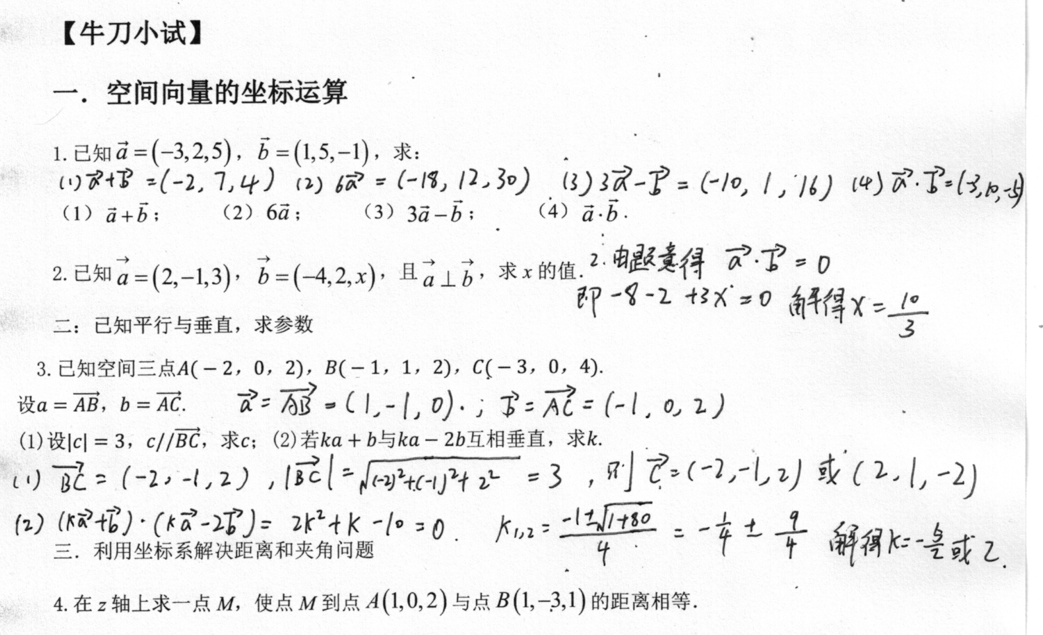 【牛刀小试】
一．空间向量的坐标运算
1.已知 a⃗ = (−3,2,5)，b⃗ = (1,5,−1)，求：
(1) a⃗+b⃗ = (-2, 7, 4) (2) 6a⃗ = (-18, 12, 30) (3) 3a⃗-b⃗ = (-10, 1, 16) (4) a⃗·b⃗ = (-3, 10, -5)
（1）a⃗+b⃗； （2）6a⃗； （3）3a⃗−b⃗； （4）a⃗·b⃗．
2.已知 a⃗ = (2,−1,3)，b⃗ = (−4,2,x)，且 a⃗ ⊥ b⃗，求 x 的值．
2. 由题意得 a⃗·b⃗ = 0
即 -8-2+3x = 0 解得 x = 10/3
二：已知平行与垂直，求参数
3.已知空间三点A(−2，0，2)，B(−1，1，2)，C(−3，0，4).
设a = AB⃗，b = AC⃗.
a⃗ = AB⃗ = (1, -1, 0). ; b⃗ = AC⃗ = (-1, 0, 2)
(1)设|c| = 3，c//BC⃗，求c；(2)若ka + b与ka − 2b互相垂直，求k.
(1) BC⃗ = (-2, -1, 2), |BC⃗| = √((-2)²+(-1)²+2²) = 3, 则 c⃗ = (-2, -1, 2) 或 (2, 1, -2)
(2) (ka⃗+b⃗)·(ka⃗-2b⃗) = 2k²+k-10 = 0. k₁,₂ = (-1±√(1+80))/4 = -1/4 ± 9/4 解得 k = -5/2 或 2.
三．利用坐标系解决距离和夹角问题
4.在 z 轴上求一点 M，使点 M 到点 A(1,0,2) 与点 B(1,−3,1) 的距离相等．